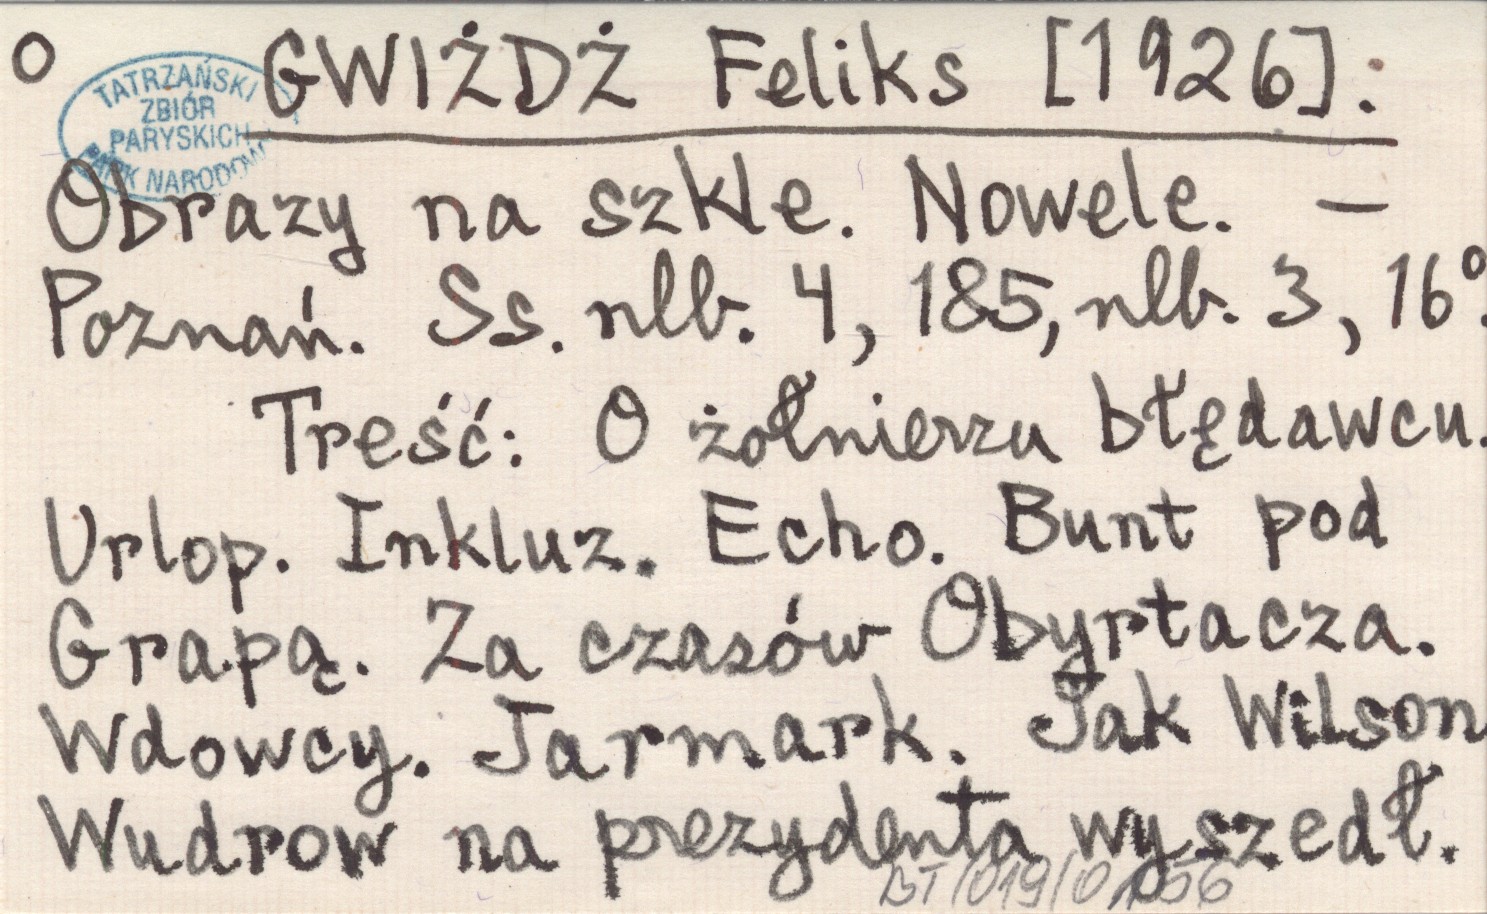 O GWIŻDŻ Feliks [1926]:
TATRZAŃSKI
ZBIÓR
PARYSKICH
PARK NARODOWY
Obrazy na szkle. Nowele. –
Poznań. Ss. nlb. 4, 185, nlb. 3, 16°.
Treść: O żołnierzu błędawcu.
Urlop. Inkluz. Echo. Bunt pod
Grapą. Za czasów Obyrtacza.
Wdowcy. Jarmark. Jak Wilson
Wudrow na prezydenta wyszedł.